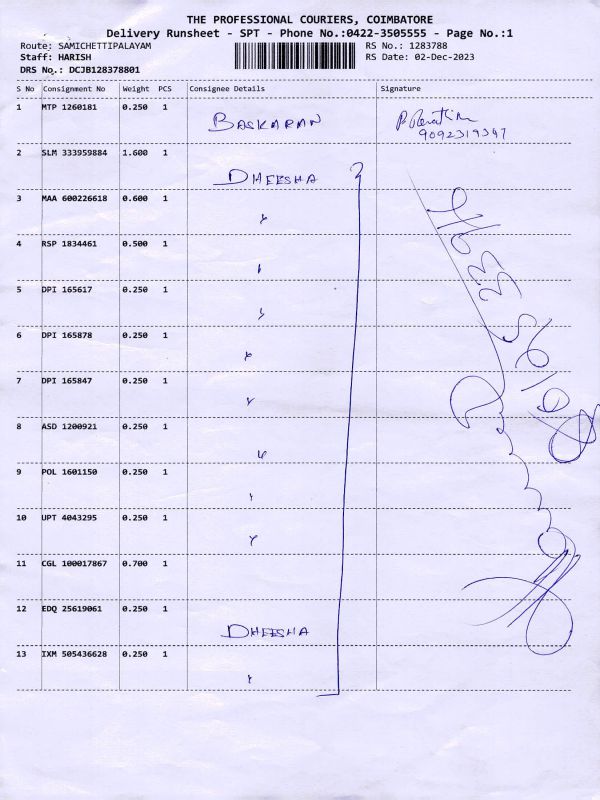 THE PROFESSIONAL COURIERS, COIMBATORE
Delivery Runsheet - SPT - Phone No.:0422-3505555 - Page No.:1
Route: SAMICHETTIPALAYAM RS No.: 1283788
Staff: HARISH RS Date: 02-Dec-2023
DRS No.: DCJB128378801
S No Consignment No Weight PCS Consignee Details Signature
1 MTP 1260181 0.250 1 BASKARAN
9092319347
2 SLM 333959884 1.600 1 DHEESHA
3 MAA 600226618 0.600 1
4 RSP 1834461 0.500 1
5 DPI 165617 0.250 1
6 DPI 165878 0.250 1
7 DPI 165847 0.250 1
8 ASD 1200921 0.250 1
9 POL 1601150 0.250 1
10 UPT 4043295 0.250 1
11 CGL 100017867 0.700 1
12 EDQ 25619061 0.250 1 DHEESHA
13 IXM 505436628 0.250 1